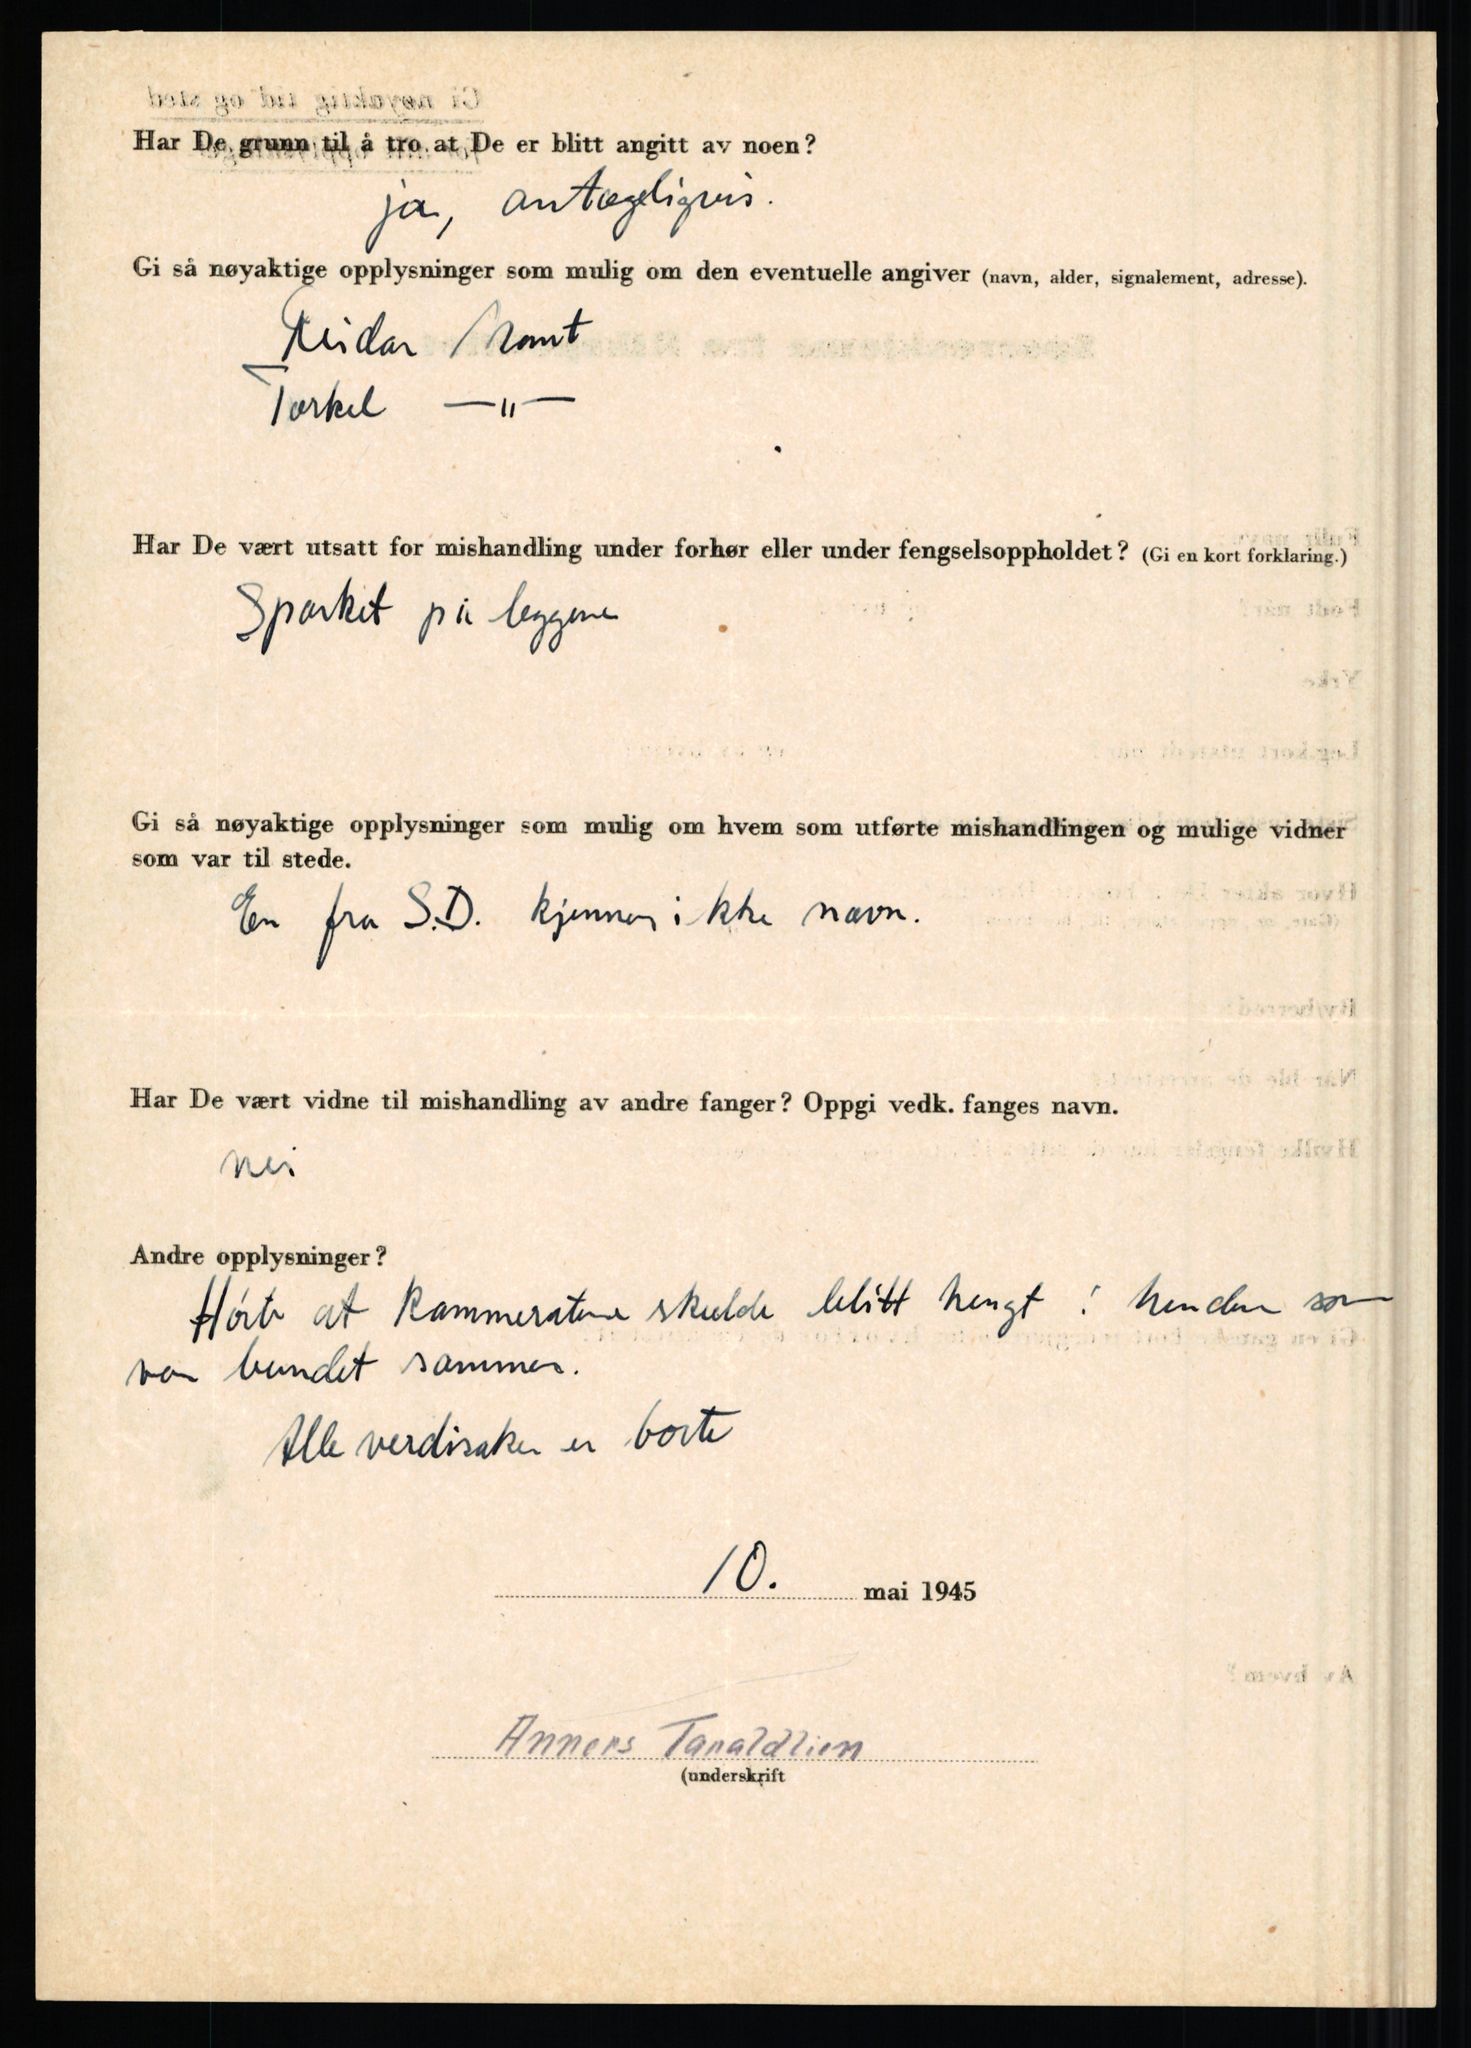 Har De grunn til å tro at De er blitt angitt av noen?
ja, antageligvis.
Gi så nøyaktige opplysninger som mulig om den eventuelle angiver (navn, alder, signalement, adresse).
Reidar
Torkel —"—
Har De vært utsatt for mishandling under forhør eller under fengselsoppholdet? (Gi en kort forklaring.)
Sparket på leggene
Gi så nøyaktige opplysninger som mulig om hvem som utførte mishandlingen og mulige vidner
som var til stede.
En fra S.D. kjenner ikke navn.
Har De vært vidne til mishandling av andre fanger? Oppgi vedk. fanges navn.
nei
Andre opplysninger?
Hørte at kammeratene skulde blitt hengt i hendene som
var bundet sammen.
Alle verdisaker er borte
10. mai 1945
Anners Tanaldlien
(underskrift